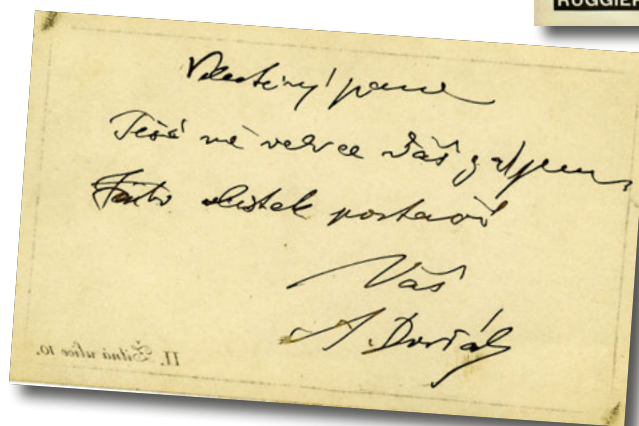 RUGGIER
Velectěný pane
Těší mě velice Váš zájem
Tento lístek postačí
Váš
A. Dvořák
II. Žitná ulice 10.